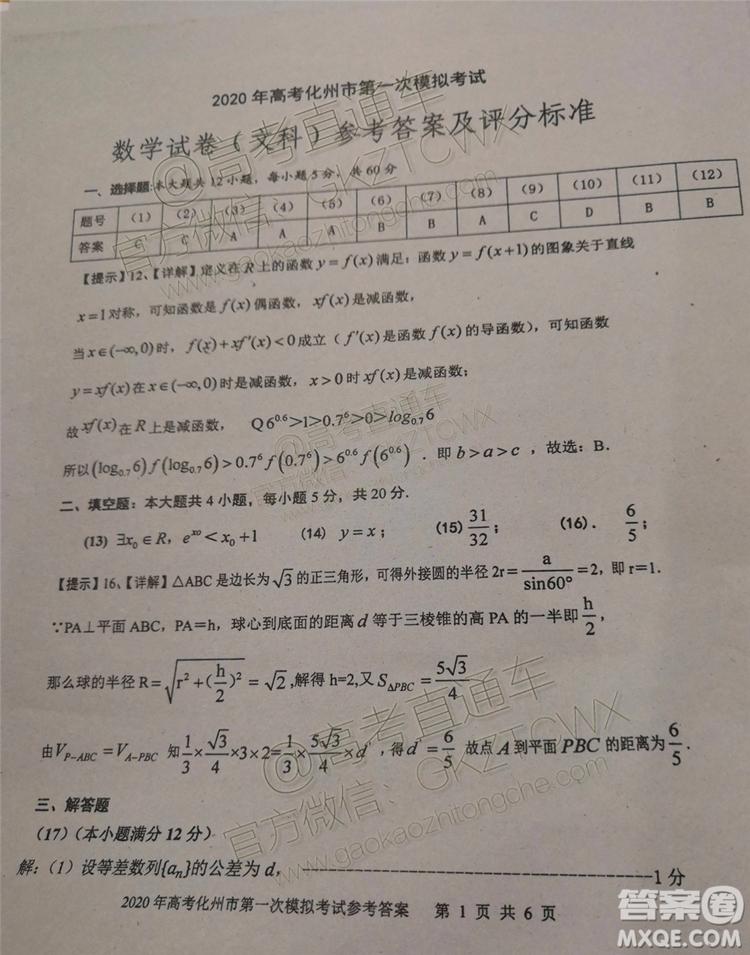 2020年高考化州市第一次模拟考试
数学试卷(文科)参考答案及评分标准
一、选择题:本大题共12小题,每小题5分,共60分
题号 (1) (2) (3) (4) (5) (6) (7) (8) (9) (10) (11) (12)
答案 C C A A A B B A C D B B
【提示】12、【详解】定义在R上的函数y=f(x)满足:函数y=f(x+1)的图象关于直线
x=1对称,可知函数是f(x)偶函数,xf(x)是减函数,
当x∈(-∞,0)时,f(x)+xf'(x)<0成立(f'(x)是函数f(x)的导函数),可知函数
y=xf(x)在x∈(-∞,0)时是减函数,x>0时xf(x)是减函数;
故xf(x)在R上是减函数, Q6^0.6>1>0.7^6>0>log_0.7 6
所以(log_0.7 6)f(log_0.7 6)>0.7^6 f(0.7^6)>6^0.6 f(6^0.6).即b>a>c,故选:B.
二、填空题:本大题共4小题,每小题5分,共20分.
(13) ∃x₀∈R,e^x₀<x₀+1 (14) y=x; (15) 31/32; (16). 6/5;
【提示】16、【详解】△ABC是边长为√3的正三角形,可得外接圆的半径2r=a/sin60°=2,即r=1.
∵PA⊥平面ABC,PA=h,球心到底面的距离d等于三棱锥的高PA的一半即h/2,
那么球的半径R=√(r²+(h/2)²)=√2,解得h=2,又S_△PBC=5√3/4
由V_P-ABC=V_A-PBC 知1/3×√3/4×3×2=1/3×5√3/4×d',得d'=6/5 故点A到平面PBC的距离为6/5.
三、解答题
(17)(本小题满分12分)
解:(1)设等差数列{aₙ}的公差为d,----------1分
2020年高考化州市第一次模拟考试参考答案 第1页共6页
@高考直通车
官方微信:GKZTCWX
www.gaokaozhitongche.com
@高考直通车
GKZTCWX
@高考直通车
官方微信:GKZTCWX
www.gaokaozhitongche.com
答案圈
MXQE.COM